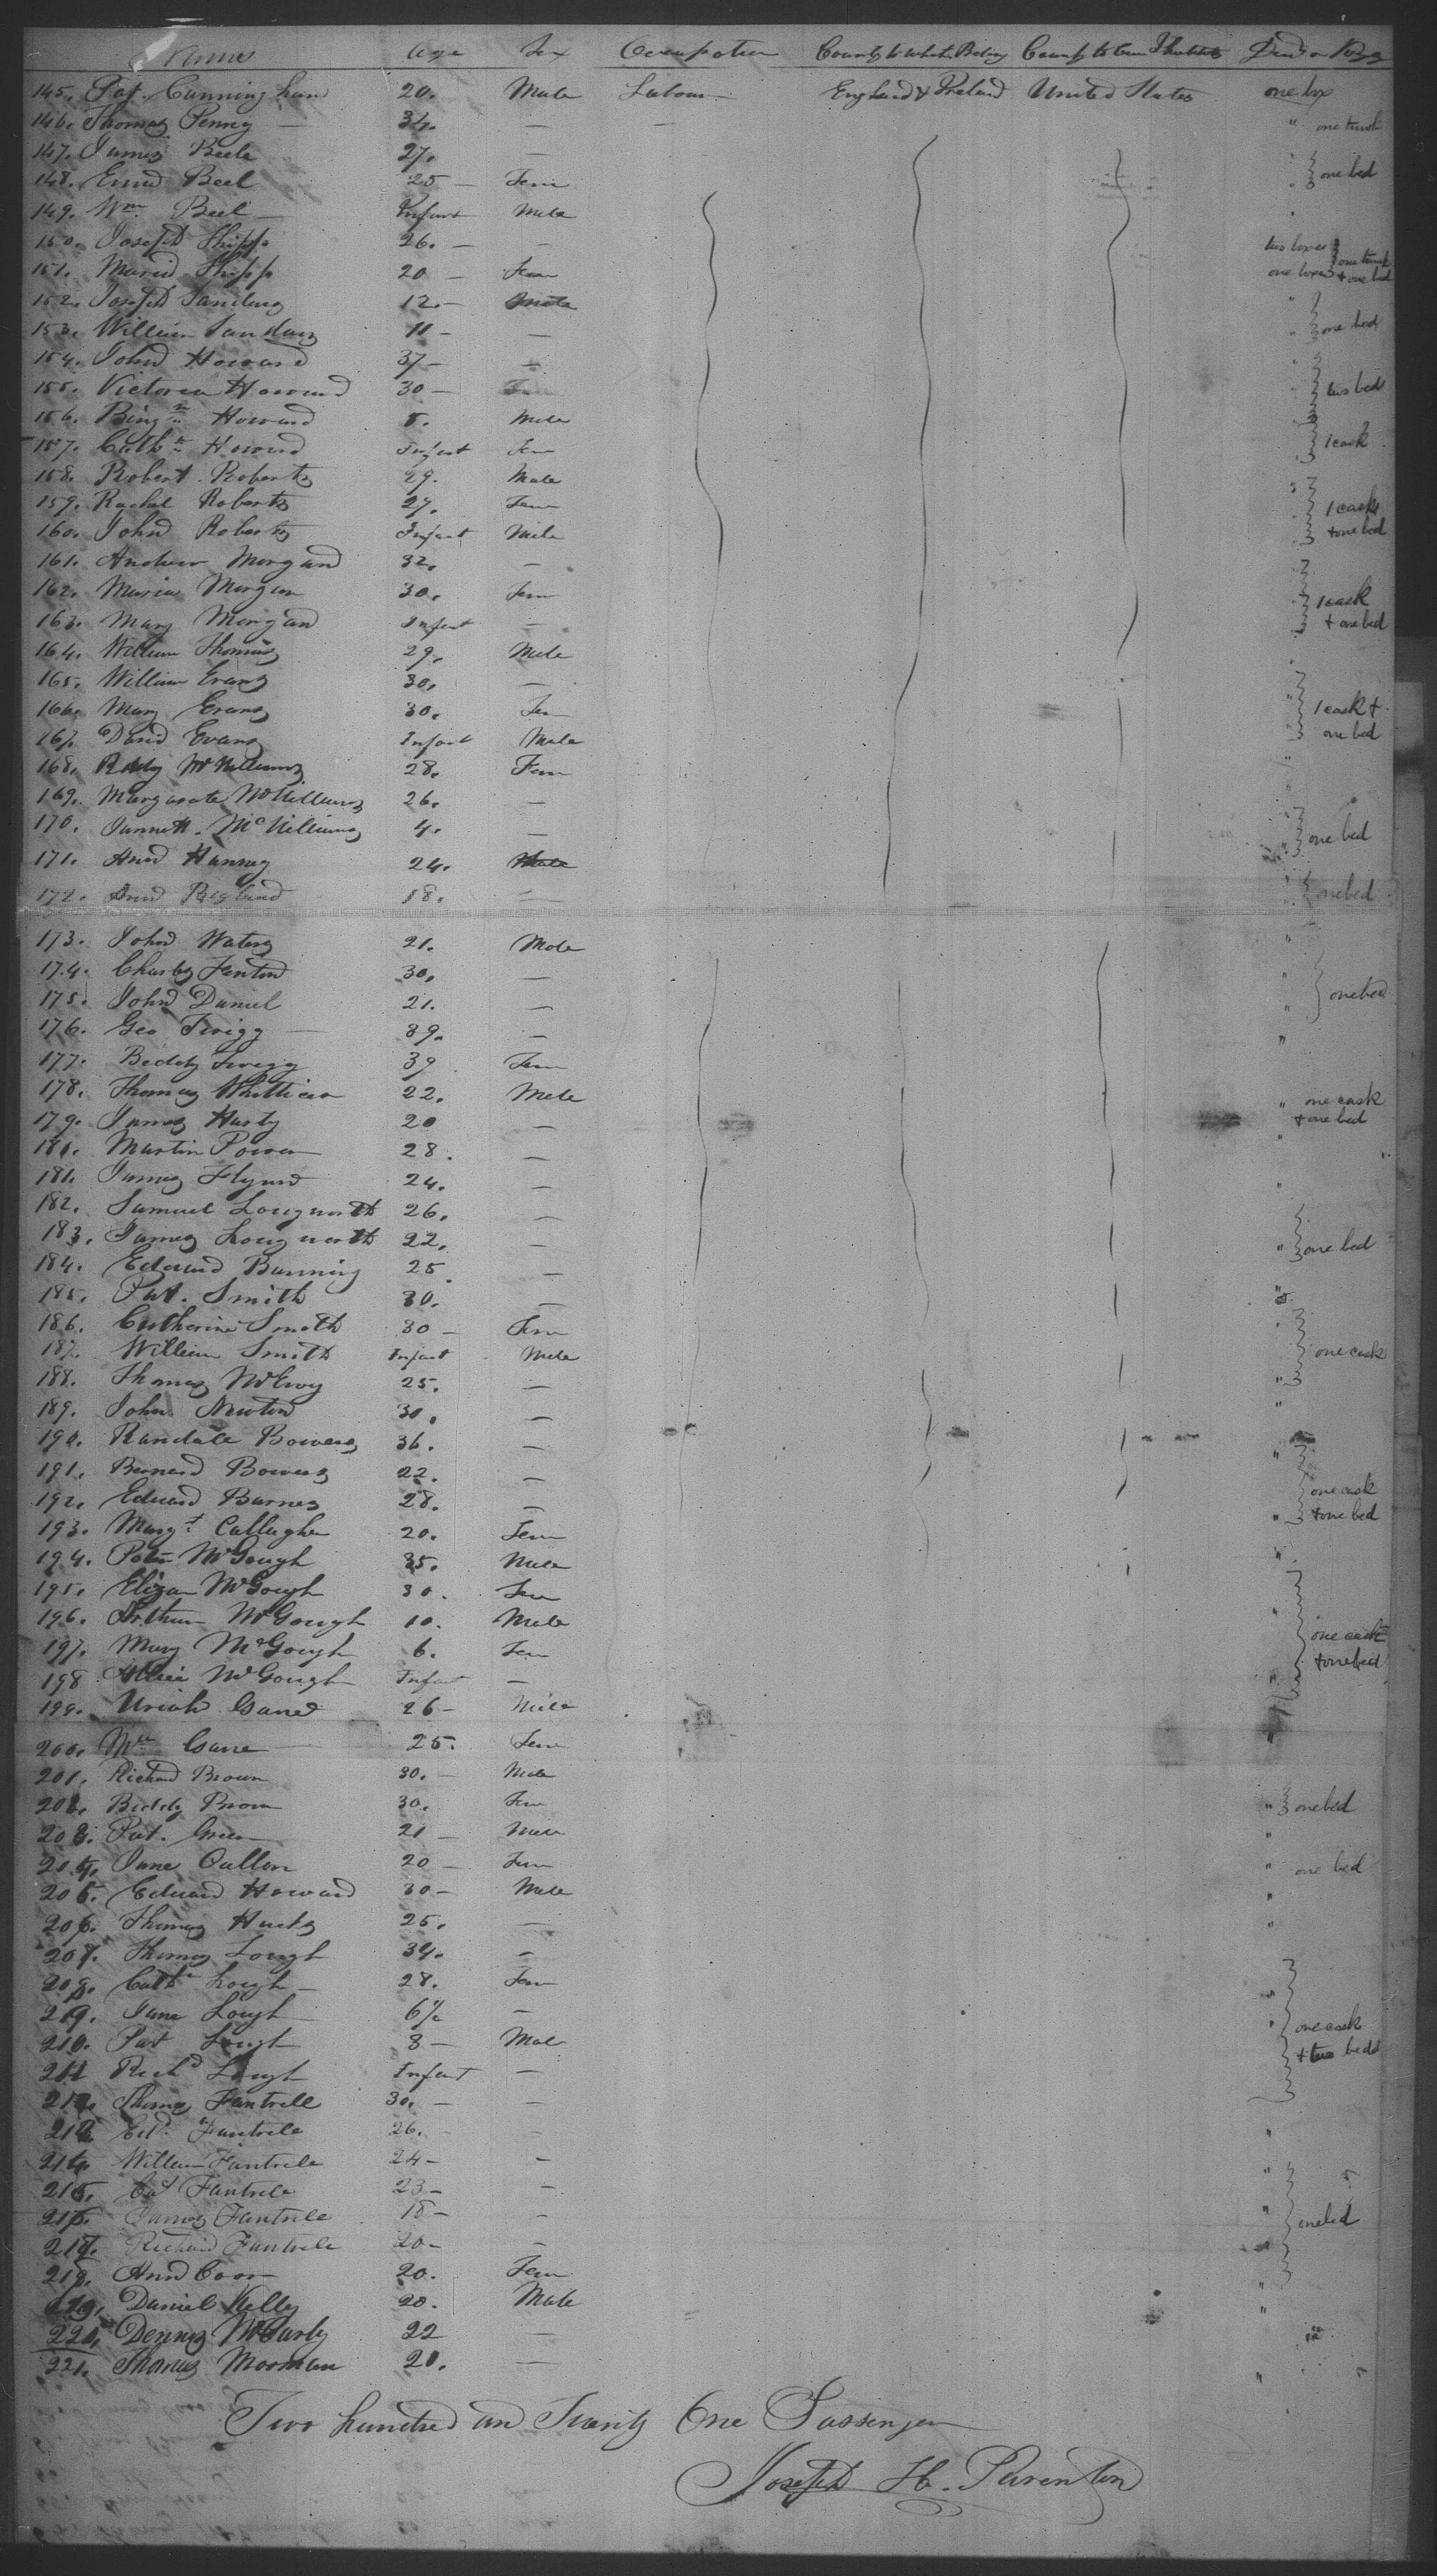 Names Age Sex Occupation County to which Belong County to Inhabit
145. Pat. Cunningham 20. Male Labour England & Ireland United States one box
146. Thomas Penny — 34. — — " one trunk
147. James Beele 27. —
148. Beel 25 — Fem one bed
149. Wm. Beel — Infant Male
150. Joseph Shipp 26. — — two boxes
151. Maria Shipp 20 — Fem one boxes one trunk + one bed
152. Joseph Sanders 12. — Male "
153. William Sanders 11 — — " one bed
154. John Howard 37 — —
155. Victoria Howard 30 — Fem two beds
156. Binjn Howard 5. Male
157. Cathn Howard Infant Fem 1 cask
158. Robert Roberts 29. Male
159. Rachel Roberts 27. Fem 1 cask
160. John Roberts Infant Male + one bed
161. Andrew Morgand 32. —
162. Maria Morgan 30. Fem 1 cask
163. Mary Morgand Infant — + one bed
164. William Thomas 29. Male
165. William Evans 30. —
166. Mary Evans 30. Fem " 1 cask +
167. David Evans Infant Male one bed
168. McWilliams 28. Fem "
169. Margarate McWilliams 26. —
170. Jannett. McWilliams 4. — one bed
171. Ann Hannay 24. Male
172. Ann 18. — one bed
173. John Waters 21. Male "
174. Charles Fenton 30. — "
175. John Daniel 21. — " one bed
176. Geo Twigg — 39. — "
177. Beddy Twigg 39 Fem
178. Thomas Whittier 22. Male " one cask
179. James Harty 20 — + one bed
180. Martin Power 28. — "
181. James Flynn 24. — "
182. Samuel Longworth 26. —
183. James Longworth 22. — " one bed
184. Edward Banning 25 —
185. Pat. Smith 30. — "
186. Catherine Smith 30 — Fem
187. William Smith Infant Male one cask
188. Thomas McEvoy 25. — "
189. John Newton 30. — "
190. Randale Bowers 36. — "
191. Bernard Bowers 22. — one cask
192. Edward Barnes 28. — + one bed
193. Margt. Callaghan 20. Fem "
194. McGough 35. Male "
195. Eliza McGough 30. Fem
196. Arthur McGough 10. Male "
197. Mary McGough 6. Fem one cask
198 McGough Infant — + one bed
199. Uriah Gane 26 — Male
200. Gane — 25. Fem
201. Richard Brown 30. — Male
202. Biddy Brown 30. Fem " one bed
203. Pat. Green 21 — Male "
204. Jane Cullon 20 — Fem " one bed
205. Edward Howard 30 — Male "
206. Thomas Hucks 25. — "
207. Thomas Lough 34. —
208. Cathn Lough — 28. Fem "
209. Jane Lough —
210. Pat Lough 8 — Male " one cask
211 Richd Lough Infant — + two beds
212. Thomas Fantrell 30. — —
213. Edd. Fantrele 26. — "
214. William Fantrele 24 — — "
215. Fantrele 23 — —
216. James Fantrele 18 — — " one bed
217. Richard Fantrele 20 — — "
218. Ann Coon 20. Fem
219. Daniel Kelly 20. Male "
220. Dennis McCarty 22 — "
221. Thomas Moorman 20. — "
Two hundred and Twenty One Passengers
Joseph H. Purenton